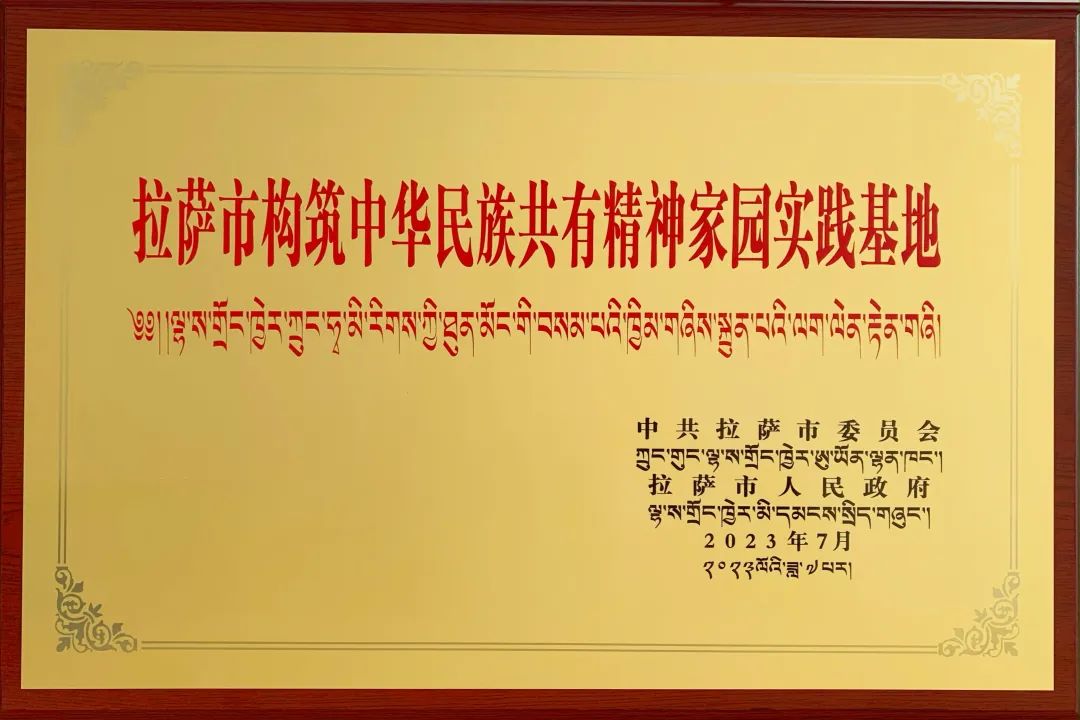 拉萨市构筑中华民族共有精神家园实践基地
༄༅། །ལྷ་ས་གྲོང་ཁྱེར་ཀྲུང་ཧྭ་མི་རིགས་ཀྱི་ཐུན་མོང་གི་བསམ་པའི་ཁྱིམ་གཞིས་སྐྲུན་པའི་ལག་ལེན་རྟེན་གཞི།
中共拉萨市委员会
ཀྲུང་གུང་ལྷ་ས་གྲོང་ཁྱེར་ཨུ་ཡོན་ལྷན་ཁང་།
拉萨市人民政府
ལྷ་ས་གྲོང་ཁྱེར་མི་དམངས་སྲིད་གཞུང་།
2023年7月
༢༠༢༣ལོའི་ཟླ་༧པར།